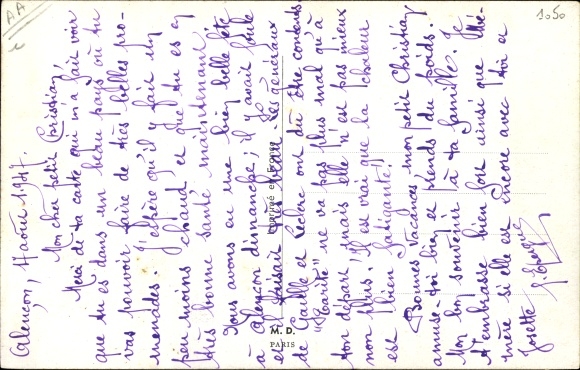 AA
1050
Alençon, 17 août 1947.
Mon cher petit Christian,
Merci de ta carte qui m'a fait voir
que tu es dans un beau pays où tu
vas pouvoir faire de très belles pro-
menades. J'espère qu'il y fait un
peu moins chaud et que tu es en
très bonne santé maintenant
Nous avons eu une bien belle fête
à Alençon dimanche; il y avait foule
et il faisait
les généraux
de Gaulle et Leclerc ont dû être contents
ne va pas plus mal qu'à
ton départ mais elle n'est pas mieux
non plus. Il est vrai que la chaleur
est bien fatigante!
Bonnes vacances mon petit Christian
amuse-toi bien et prends du poids.
Mon bon souvenir à ta famille. Je
t'embrasse bien fort ainsi que Mé-
mère si elle est encore avec toi et
Josette
Imprimé en France
M. D.
PARIS